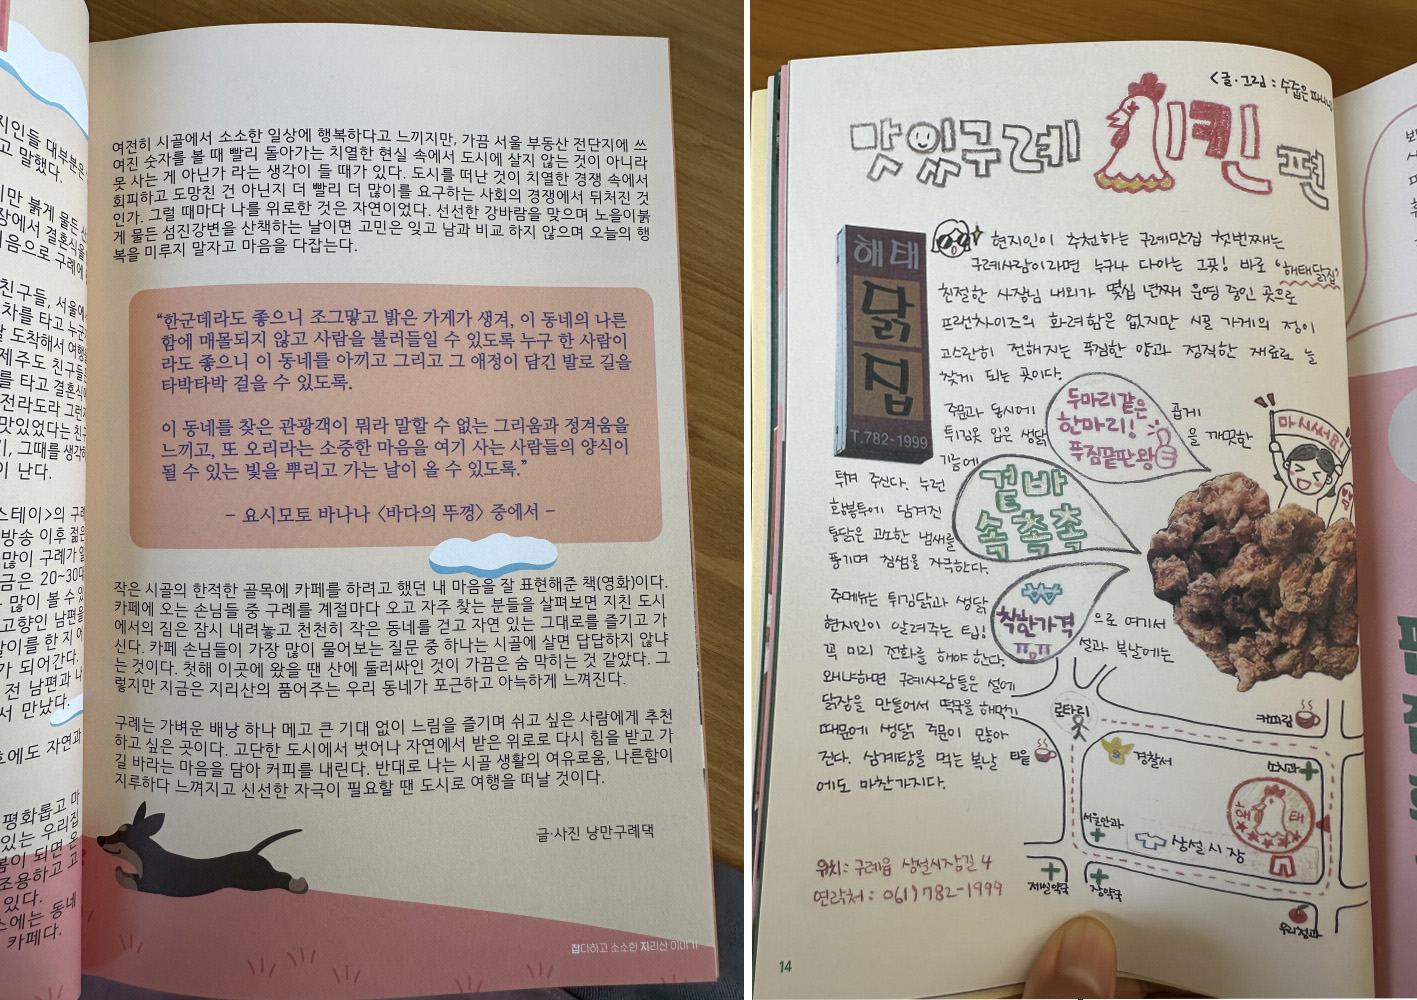 지인들 대부분은
고 말했다.
지만 붉게 물든 산
장에서 결혼식을
마음으로 구례에
친구들, 서울에서
차를 타고 누군
날 도착해서 여행
제주도 친구들은
를 타고 결혼식에
전라도라 그런지
맛있었다는 친구
기, 그때를 생각하
이 난다.
스테이>의 구례
방송 이후 젊은
많이 구례가 알
금은 20~30대
많이 볼 수 있
고향인 남편을
살이를 한 지 어
가 되어간다.
전 남편과 나
서 만났다.
후에도 자연과
평화롭고 마
있는 우리집
봄이 되면 온
조용하고 고
있다.
소에는 동네
카페다.
여전히 시골에서 소소한 일상에 행복하다고 느끼지만, 가끔 서울 부동산 전단지에 쓰
여진 숫자를 볼 때 빨리 돌아가는 치열한 현실 속에서 도시에 살지 않는 것이 아니라
못 사는 게 아닌가 라는 생각이 들 때가 있다. 도시를 떠난 것이 치열한 경쟁 속에서
회피하고 도망친 건 아닌지 더 빨리 더 많이를 요구하는 사회의 경쟁에서 뒤처진 것
인가. 그럴 때마다 나를 위로한 것은 자연이었다. 선선한 강바람을 맞으며 노을이붉
게 물든 섬진강변을 산책하는 날이면 고민은 잊고 남과 비교 하지 않으며 오늘의 행
복을 미루지 말자고 마음을 다잡는다.
“한군데라도 좋으니 조그맣고 밝은 가게가 생겨, 이 동네의 나른
함에 매몰되지 않고 사람을 불러들일 수 있도록 누구 한 사람이
라도 좋으니 이 동네를 아끼고 그리고 그 애정이 담긴 발로 길을
타박타박 걸을 수 있도록.
이 동네를 찾은 관광객이 뭐라 말할 수 없는 그리움과 정겨움을
느끼고, 또 오리라는 소중한 마음을 여기 사는 사람들의 양식이
될 수 있는 빛을 뿌리고 가는 날이 올 수 있도록.”
– 요시모토 바나나 <바다의 뚜껑> 중에서 –
작은 시골의 한적한 골목에 카페를 하려고 했던 내 마음을 잘 표현해준 책(영화)이다.
카페에 오는 손님들 중 구례를 계절마다 오고 자주 찾는 분들을 살펴보면 지친 도시
에서의 짐은 잠시 내려놓고 천천히 작은 동네를 걷고 자연 있는 그대로를 즐기고 가
신다. 카페 손님들이 가장 많이 물어보는 질문 중 하나는 시골에 살면 답답하지 않냐
는 것이다. 첫해 이곳에 왔을 땐 산에 둘러싸인 것이 가끔은 숨 막히는 것 같았다. 그
렇지만 지금은 지리산의 품어주는 우리 동네가 포근하고 아늑하게 느껴진다.
구례는 가벼운 배낭 하나 메고 큰 기대 없이 느림을 즐기며 쉬고 싶은 사람에게 추천
하고 싶은 곳이다. 고단한 도시에서 벗어나 자연에서 받은 위로로 다시 힘을 받고 가
길 바라는 마음을 담아 커피를 내린다. 반대로 나는 시골 생활의 여유로움, 나른함이
지루하다 느껴지고 신선한 자극이 필요할 땐 도시로 여행을 떠날 것이다.
글·사진 낭만구례댁
잡다하고 소소한 지리산 이야기
<글·그림 : 수줍은
맛있구례 치킨 편
해태
닭집
T.782-1999
현지인이 추천하는 구례맛집 첫번째는
구례사람이라면 누구나 다아는 그곳! 바로 '해태닭집'
친절한 사장님 내외가 몇십 년째 운영 중인 곳으로
프랜차이즈의 화려함은 없지만 시골 가게의 정이
고스란히 전해지는 푸짐한 양과 정직한 재료로 늘
찾게 되는 곳이다.
주문과 동시에
두마리같은
한마리!
푸짐끝판왕
곱게
튀김옷 입은 생닭
을 깨끗한
기름에
튀겨 주신다. 누런
황봉투에 담겨진
통닭은 고소한 냄새를
풍기며 침샘을 자극한다.
겉바
속촉촉
마시써요!
주메뉴는 튀김닭과 생닭
₩
착한가격
으로 여기서
현지인이 알려주는 팁!
꼭 미리 전화를 해야 한다.
설과 복날에는
왜냐하면 구례사람들은 설에
닭장을 만들어서 떡국을 해먹기
때문에 생닭 주문이 많아
진다. 삼계탕을 먹는 복날
에도 마찬가지다.
로타리
티읕
커피림
경찰서
서울안과
상설시장
해
태
제일약국
장약국
우리청과
위치 : 구례읍 상설시장길 4
연락처 : 061)782-1999
14